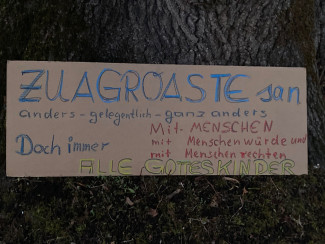 ZUAGROASTE san
anders - gelegentlich - ganz anders
Doch immer
Mit MENSCHEN
mit Menschenwürde und
mit Menschenrechten
ALLE GOTESKINDER